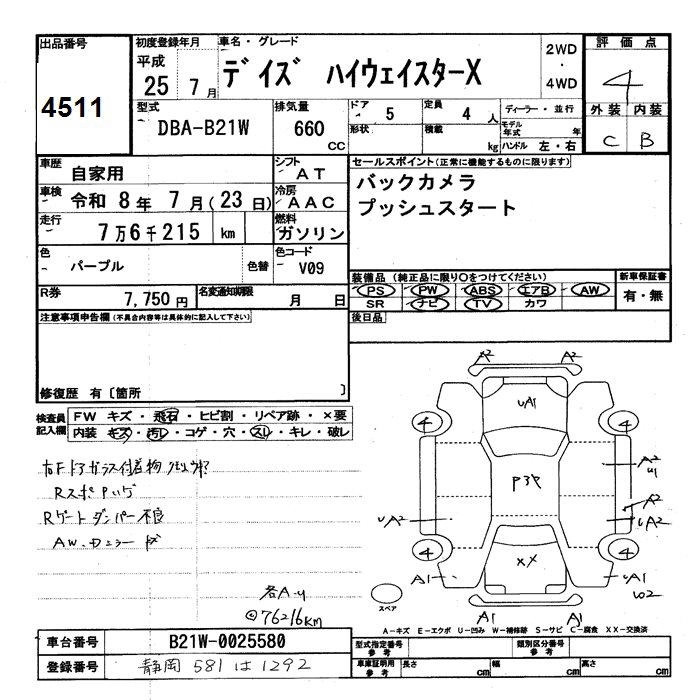 出品番号
4511
初度登録年月
平成
25 7月
車名・グレード
デイズ ハイウェイスターX
2WD
・
4WD
評価点
4
外装 内装
C B
型式
DBA-B21W
排気量
660
CC
ドア
5
形状
定員
4 人
積載
kg
ディーラー・並行
モデル年式 年
ハンドル 左・右
車歴
自家用
シフト
AT
車検
令和 8年 7月(23日)
冷房
AAC
走行
7万6千215 km
燃料
ガソリン
色
パープル
色替
色コード
V09
R券
7,750円
名変通知期限
月 日
セールスポイント(正常に機能するものに限ります)
バックカメラ
プッシュスタート
装備品(純正品に限り○をつけてください)
PS PW ABS エアB AW
SR ナビ TV カワ
新車保証書
有・無
後日品
注意事項申告欄(不具合内容等は具体的に記入して下さい)
修復歴 有〔箇所 〕
検査員記入欄
FW キズ・飛石・ヒビ割・リペア跡・×要
内装 キズ・汚レ・コゲ・穴・スレ・キレ・破レ
Rゲートダンパー不良
各A.U
@76216km
A2 A2
UA1
4 4
A2
U1
P3Y
A2
UA2 UA2
4 4
XX
A1 UA1
W02
スペア
A1 A1
A-キズ E-エクボ U-凹み W-補修跡 S-サビ C-腐食 XX-交換済
車台番号
B21W-0025580
登録番号
静岡 581 は 1292
型式指定番号
参考
類別区分番号
参考
車庫証明用
参考
長さ cm
幅 cm
高さ cm